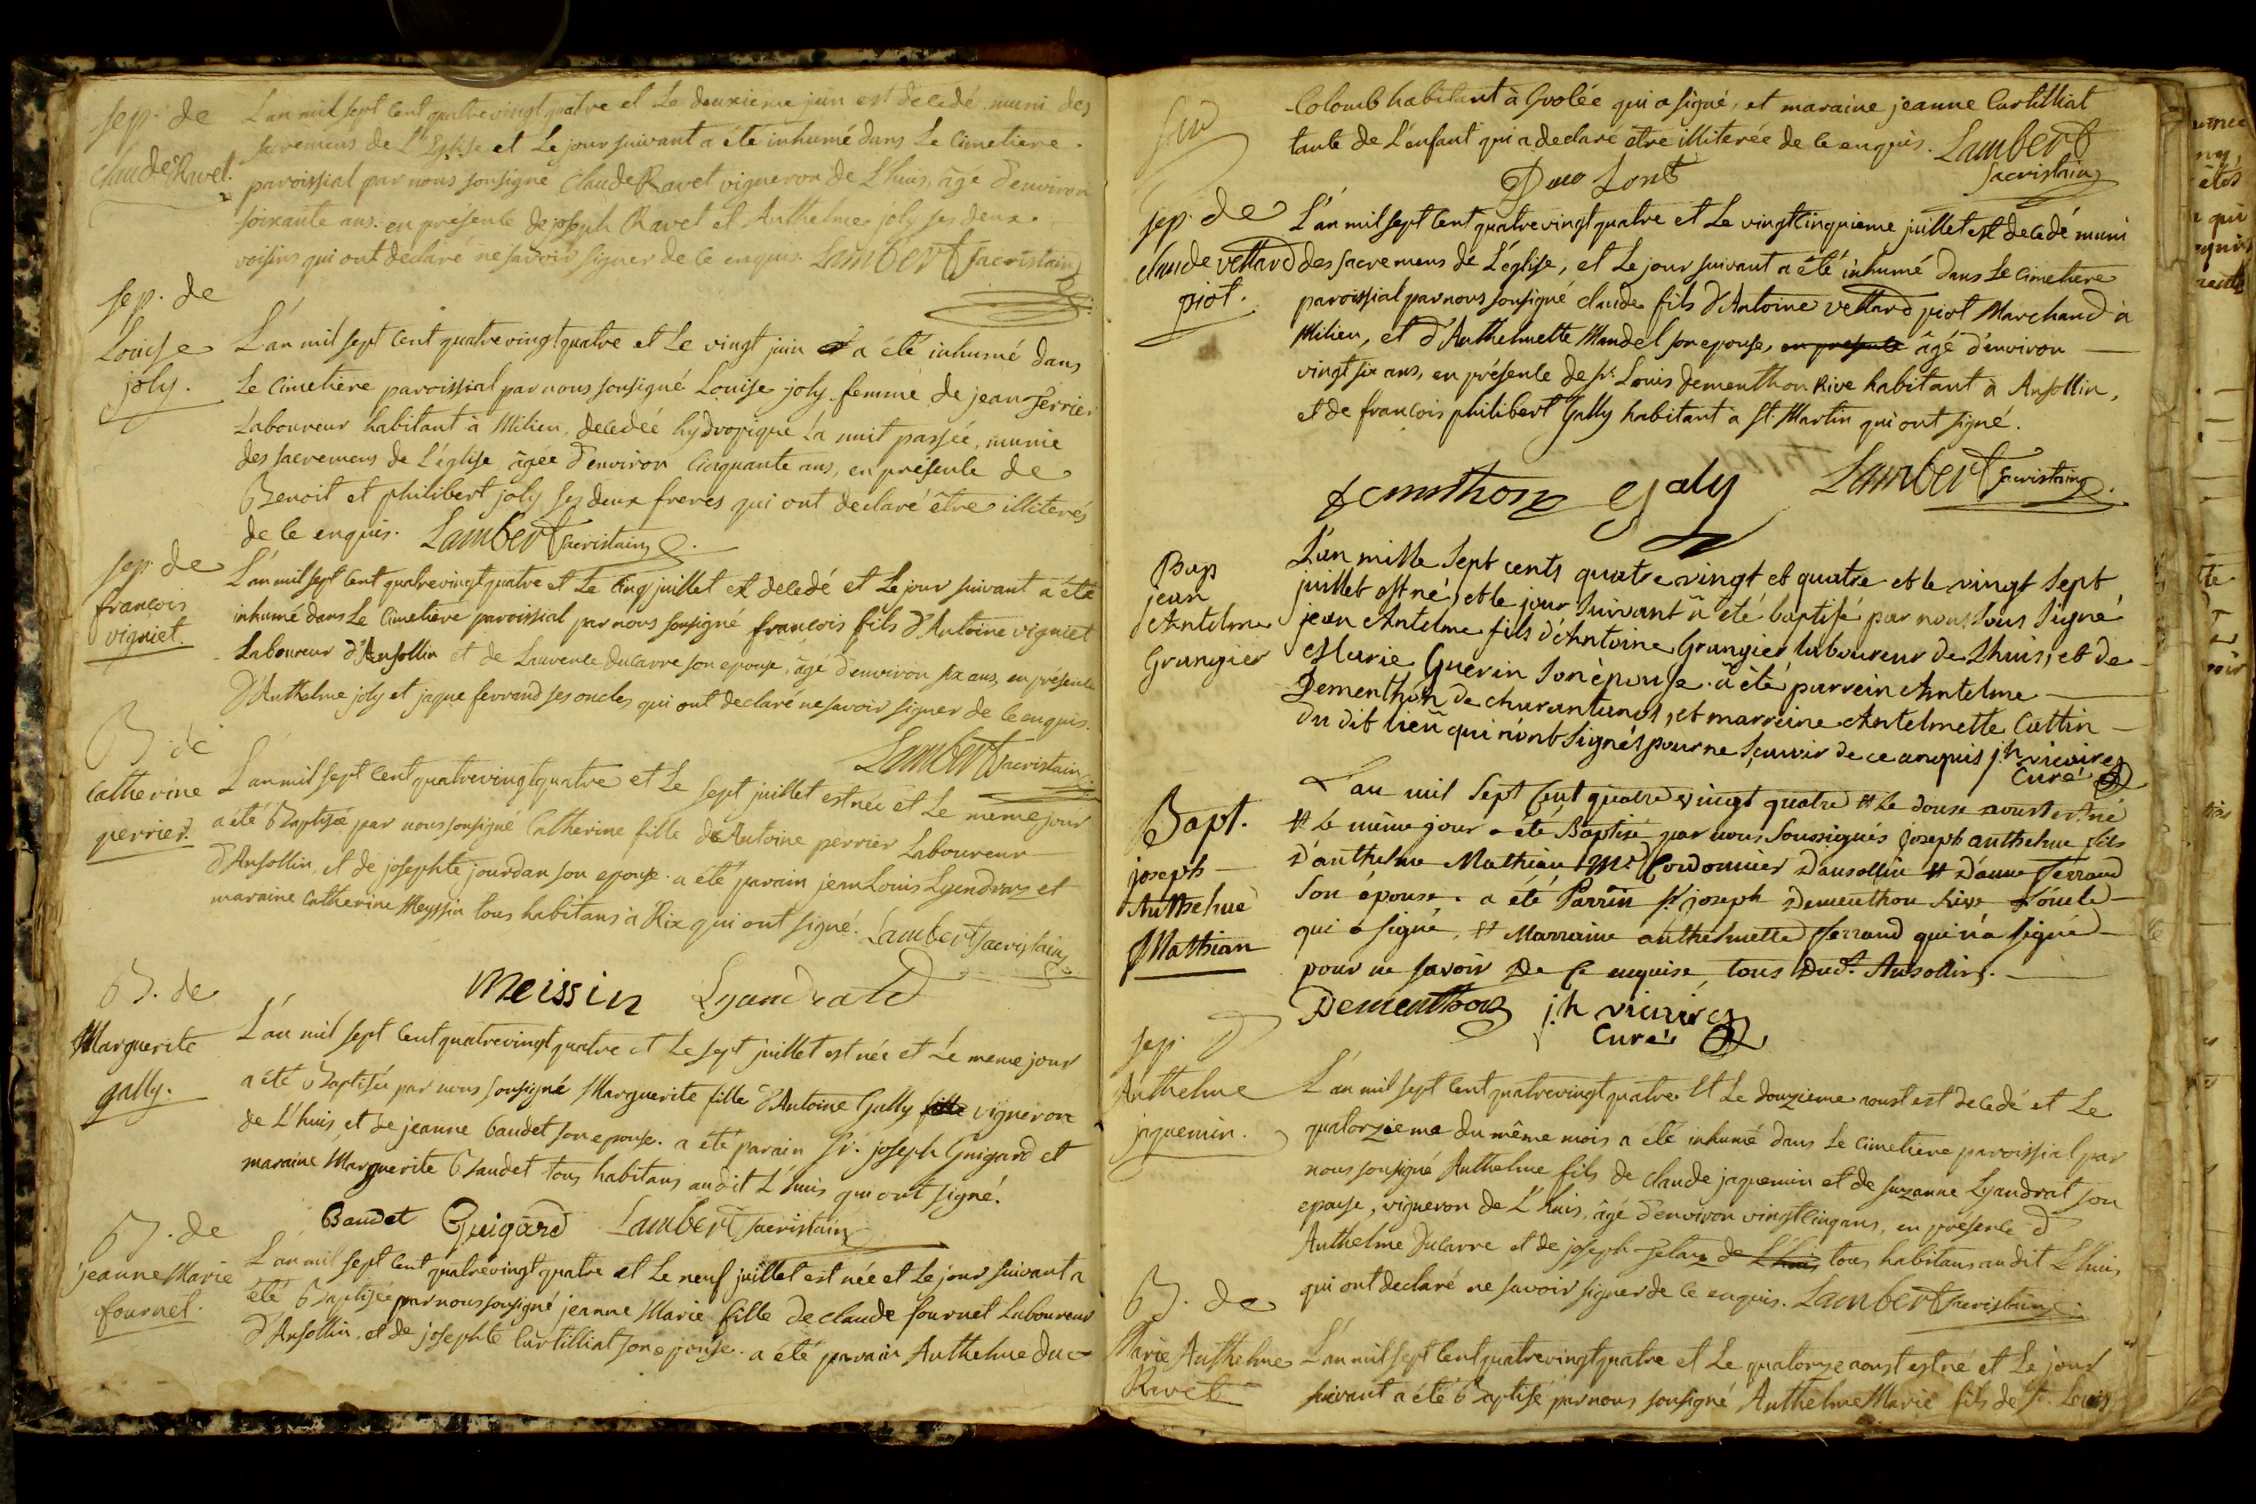 sep. de
claude Ravet.
L'an mil sept cent quatrevingt quatre et Le deuxieme juin est decedé muni des
sacremens de L'Eglise et Le jour suivant a été inhumé dans Le Cimetiere
paroissial par nous sousigné claude Ravet vigneron de Lhuis, âgé d'environ
soixante ans. en présence de joseph Ravet et Anthelme joly ses deux
voisins qui ont declaré ne savoir signer de ce enquis. Lambert sacristain
sep. de
Louise
joly.
L'an mil sept cent quatrevingt quatre et Le vingt juin a été inhumé dans
Le Cimetiere paroissial par nous sousigné Louise joly femme de jean Perrier
Laboureur habitant à Milieu, decedée hydropique La nuit passée, munie
des sacremens de L'église, âgée d'environ cinquante ans, en présence de
Benoit et philibert joly ses deux freres qui ont declaré être illiterés
de ce enquis. Lambert sacristain
sep. de
francois
vigniet.
L'an mil sept cent quatrevingt quatre et Le cinq juillet est decedé et Le jour suivant a été
inhumé dans Le Cimetiere paroissial par nous sousigné francois fils d'Antoine vigniet
Laboureur d'Ansollin et de Laurence ducarre son epouse, âgé d'environ six ans, en présence
d'Anthelme joly et jaque ferrand ses oncles qui ont declaré ne savoir signer de ce enquis.
Lambert sacristain
B. de
Catherine
perrier.
L'an mil sept cent quatrevingt quatre et Le sept juillet est née et Le meme jour
a été Baptisée par nous sousigné Catherine fille de Antoine perrier Laboureur
d'Ansollin, et de josephte jourdan son epouse. a été parain jean Louis Lyandras et
maraine Catherine Meyssin tous habitans à Rix qui ont signé. Lambert sacristain
Meissin Lyandrat
B. de
Marguerite
gally.
L'an mil sept cent quatrevingt quatre et Le sept juillet est née et Le meme jour
a été Baptisée par nous sousigné Marguerite fille d'Antoine Gally fille vigneron
de L'huis, et de jeanne Baudet son epouse. a été parain Sr. joseph Guigard et
maraine Marguerite Baudet tous habitans audit L'huis qui ont signé.
Baudet Guigard Lambert sacristain
B. de
jeanne Marie
fournet.
L'an mil sept cent quatrevingt quatre et Le neuf juillet est née et Le jour suivant a
été Baptisée par nous sousigné jeanne Marie fille de claude fournet Laboureur
d'Ansollin, et de josephte Curtilliat son epouse. a été parain Anthelme duc
Colomb habitant à Grolée qui a signé, et maraine jeanne Curtilliat
tante de L'enfant qui a declaré être illiterée de ce enquis. Lambert
sacristain
sep. de
claude vettard
piot.
L'an mil sept cent quatrevingt quatre et Le vingt cinquieme juillet est decedé muni
des sacremens de L'église, et Le jour suivant a été inhumé dans Le Cimetiere
paroissial par nous sousigné claude fils d'Antoine vettard piot Marchand à
Milieu, et d'Anthelmette Mandel son epouse, en presence âgé d'environ
vingt six ans, en présence de Sr. Louis dementhon Rive habitant à Ansollin,
et de francois philibert Gally habitant à St. Martin qui ont signé.
dementhon galy Lambert sacristain
Bap
jean
Antelme
Grangier
L'an mille sept cents quatre vingt et quatre et le vingt sept
juillet est né, et le jour suivant a été baptisé par nous sous signé
jean Antelme fils d'Antoine Grangier laboureur de Lhuis, et de
Marie Guerin son épouse. a été parrein Antelme
Dementhon de charantanos, et marreine Antelmette Cattin
du dit lieu qui n'ont signés pour ne sçavoir de ce anquis jh vicaires
Curé
Bapt.
joseph
Anthelme
Mathian
L'an mil Sept Cent quatre vingt quatre et Le douse aoust est né
et Le même jour a été Baptisé par nous Soussignés joseph anthelme fils
d'anthelme Mathian Me. Cordonnier d'ansollin et d'anne ferrand
son épouse. a été Parrin Sr joseph Dementhon Rive L'oncle
qui a signé, et Marraine anthelmette ferrand qui n'a signé
pour ne savoir de Ce enquise, tous dudt. Ansollin.
Dementhon jh vicaires
Curé
sep. d
Anthelme
jaquemin.
L'an mil sept cent quatrevingt quatre Et Le douzieme aoust est decedé et Le
quatorzieme du même mois a été inhumé dans Le Cimetiere paroissial par
nous sousigné Anthelme fils de claude jaquemin et de suzanne Lyandrat son
epouse, vigneron de L'huis, âgé d'environ vingt cinq ans, en présence d
Anthelme ducarre et de joseph de L'huis tous habitans audit L'huis
qui ont declaré ne savoir signer de ce enquis. Lambert sacristain
B. de
Marie Anthelme
Ravet
L'an mil sept cent quatrevingt quatre et Le quatorze aoust est né et Le jour
suivant a été Baptisé par nous sousigné Anthelme Marie fils de Sr. Louis